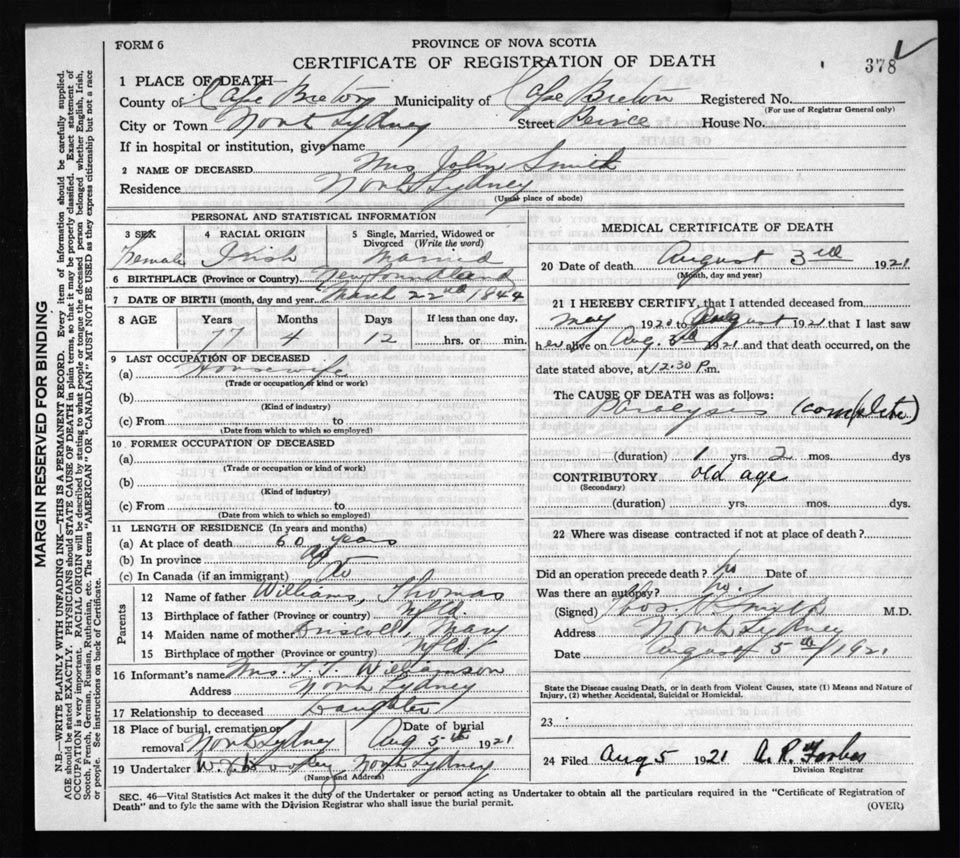 FORM 6
PROVINCE OF NOVA SCOTIA
CERTIFICATE OF REGISTRATION OF DEATH
378
1 PLACE OF DEATH—
County of Cape Breton Municipality of Cape Breton Registered No.
(For use of Registrar General only)
City or Town North Sydney Street Peirce House No.
If in hospital or institution, give name
2 NAME OF DECEASED Mrs John Smith
Residence North Sydney
(Usual place of abode)
PERSONAL AND STATISTICAL INFORMATION
3 SEX Female
4 RACIAL ORIGIN Irish
5 Single, Married, Widowed or Divorced (Write the word) Married
6 BIRTHPLACE (Province or Country) Newfoundland
7 DATE OF BIRTH (month, day and year) March 22nd 1844
8 AGE Years Months Days If less than one day,
77 4 12 hrs. or min.
9 LAST OCCUPATION OF DECEASED
(a) Housewife
(Trade or occupation or kind or work)
(b)
(Kind of industry)
(c) From to
(Date from which to which so employed)
10 FORMER OCCUPATION OF DECEASED
(a)
(Trade or occupation or kind of work)
(b)
(Kind of industry)
(c) From to
(Date from which to which so employed)
11 LENGTH OF RESIDENCE (In years and months)
(a) At place of death 60 years
(b) In province
(c) In Canada (if an immigrant)
Parents
12 Name of father Williams, Thomas
13 Birthplace of father (Province or country) Nfld.
14 Maiden name of mother Driscoll, Mary
15 Birthplace of mother (Province or country) Nfld
16 Informant's name Mrs. Williamson
Address North Sydney
17 Relationship to deceased Daughter
18 Place of burial, cremation or removal North Sydney
Date of burial Aug 5th 1921
19 Undertaker North Sydney
(Name and Address)
MEDICAL CERTIFICATE OF DEATH
20 Date of death August 3rd 1921
(Month, day and year)
21 I HEREBY CERTIFY, that I attended deceased from
May 1920 to August 1921 that I last saw
her alive on Aug. 3rd 1921 and that death occurred, on the
date stated above, at 12.30 P.m.
The CAUSE OF DEATH was as follows:
Paralysis (complete)
(duration) 1 yrs. 2 mos. dys
CONTRIBUTORY old age
(Secondary)
(duration) yrs. mos. dys.
22 Where was disease contracted if not at place of death?
Did an operation precede death? no Date of
Was there an autopsy? no.
(Signed) M.D.
Address North Sydney
Date August 5th/1921
State the Disease causing Death, or in death from Violent Causes, state (1) Means and Nature of
Injury, (2) whether Accidental, Suicidal or Homicidal.
23
24 Filed Aug 5 1921 A. R. Forbes
Division Registrar
SEC. 46—Vital Statistics Act makes it the duty of the Undertaker or person acting as Undertaker to obtain all the particulars required in the "Certificate of Registration of
Death" and to fyle the same with the Division Registrar who shall issue the burial permit.
(OVER)
MARGIN RESERVED FOR BINDING
N.B.—WRITE PLAINLY WITH UNFADING INK—THIS IS A PERMANENT RECORD. Every item of information should be carefully supplied.
AGE should be stated EXACTLY. PHYSICIANS should STATE CAUSE OF DEATH in plain terms, so that it may be properly classified. Exact statement of
OCCUPATION is very important. RACIAL ORIGIN will be described by stating to what people or tongue the deceased person belonged whether English, Irish,
Scotch, French, German, Russian, Ruthenian, etc. The terms "AMERICAN" OR "CANADIAN" MUST NOT BE USED as they express citizenship but not a race
or people. See instructions on back of Certificate.